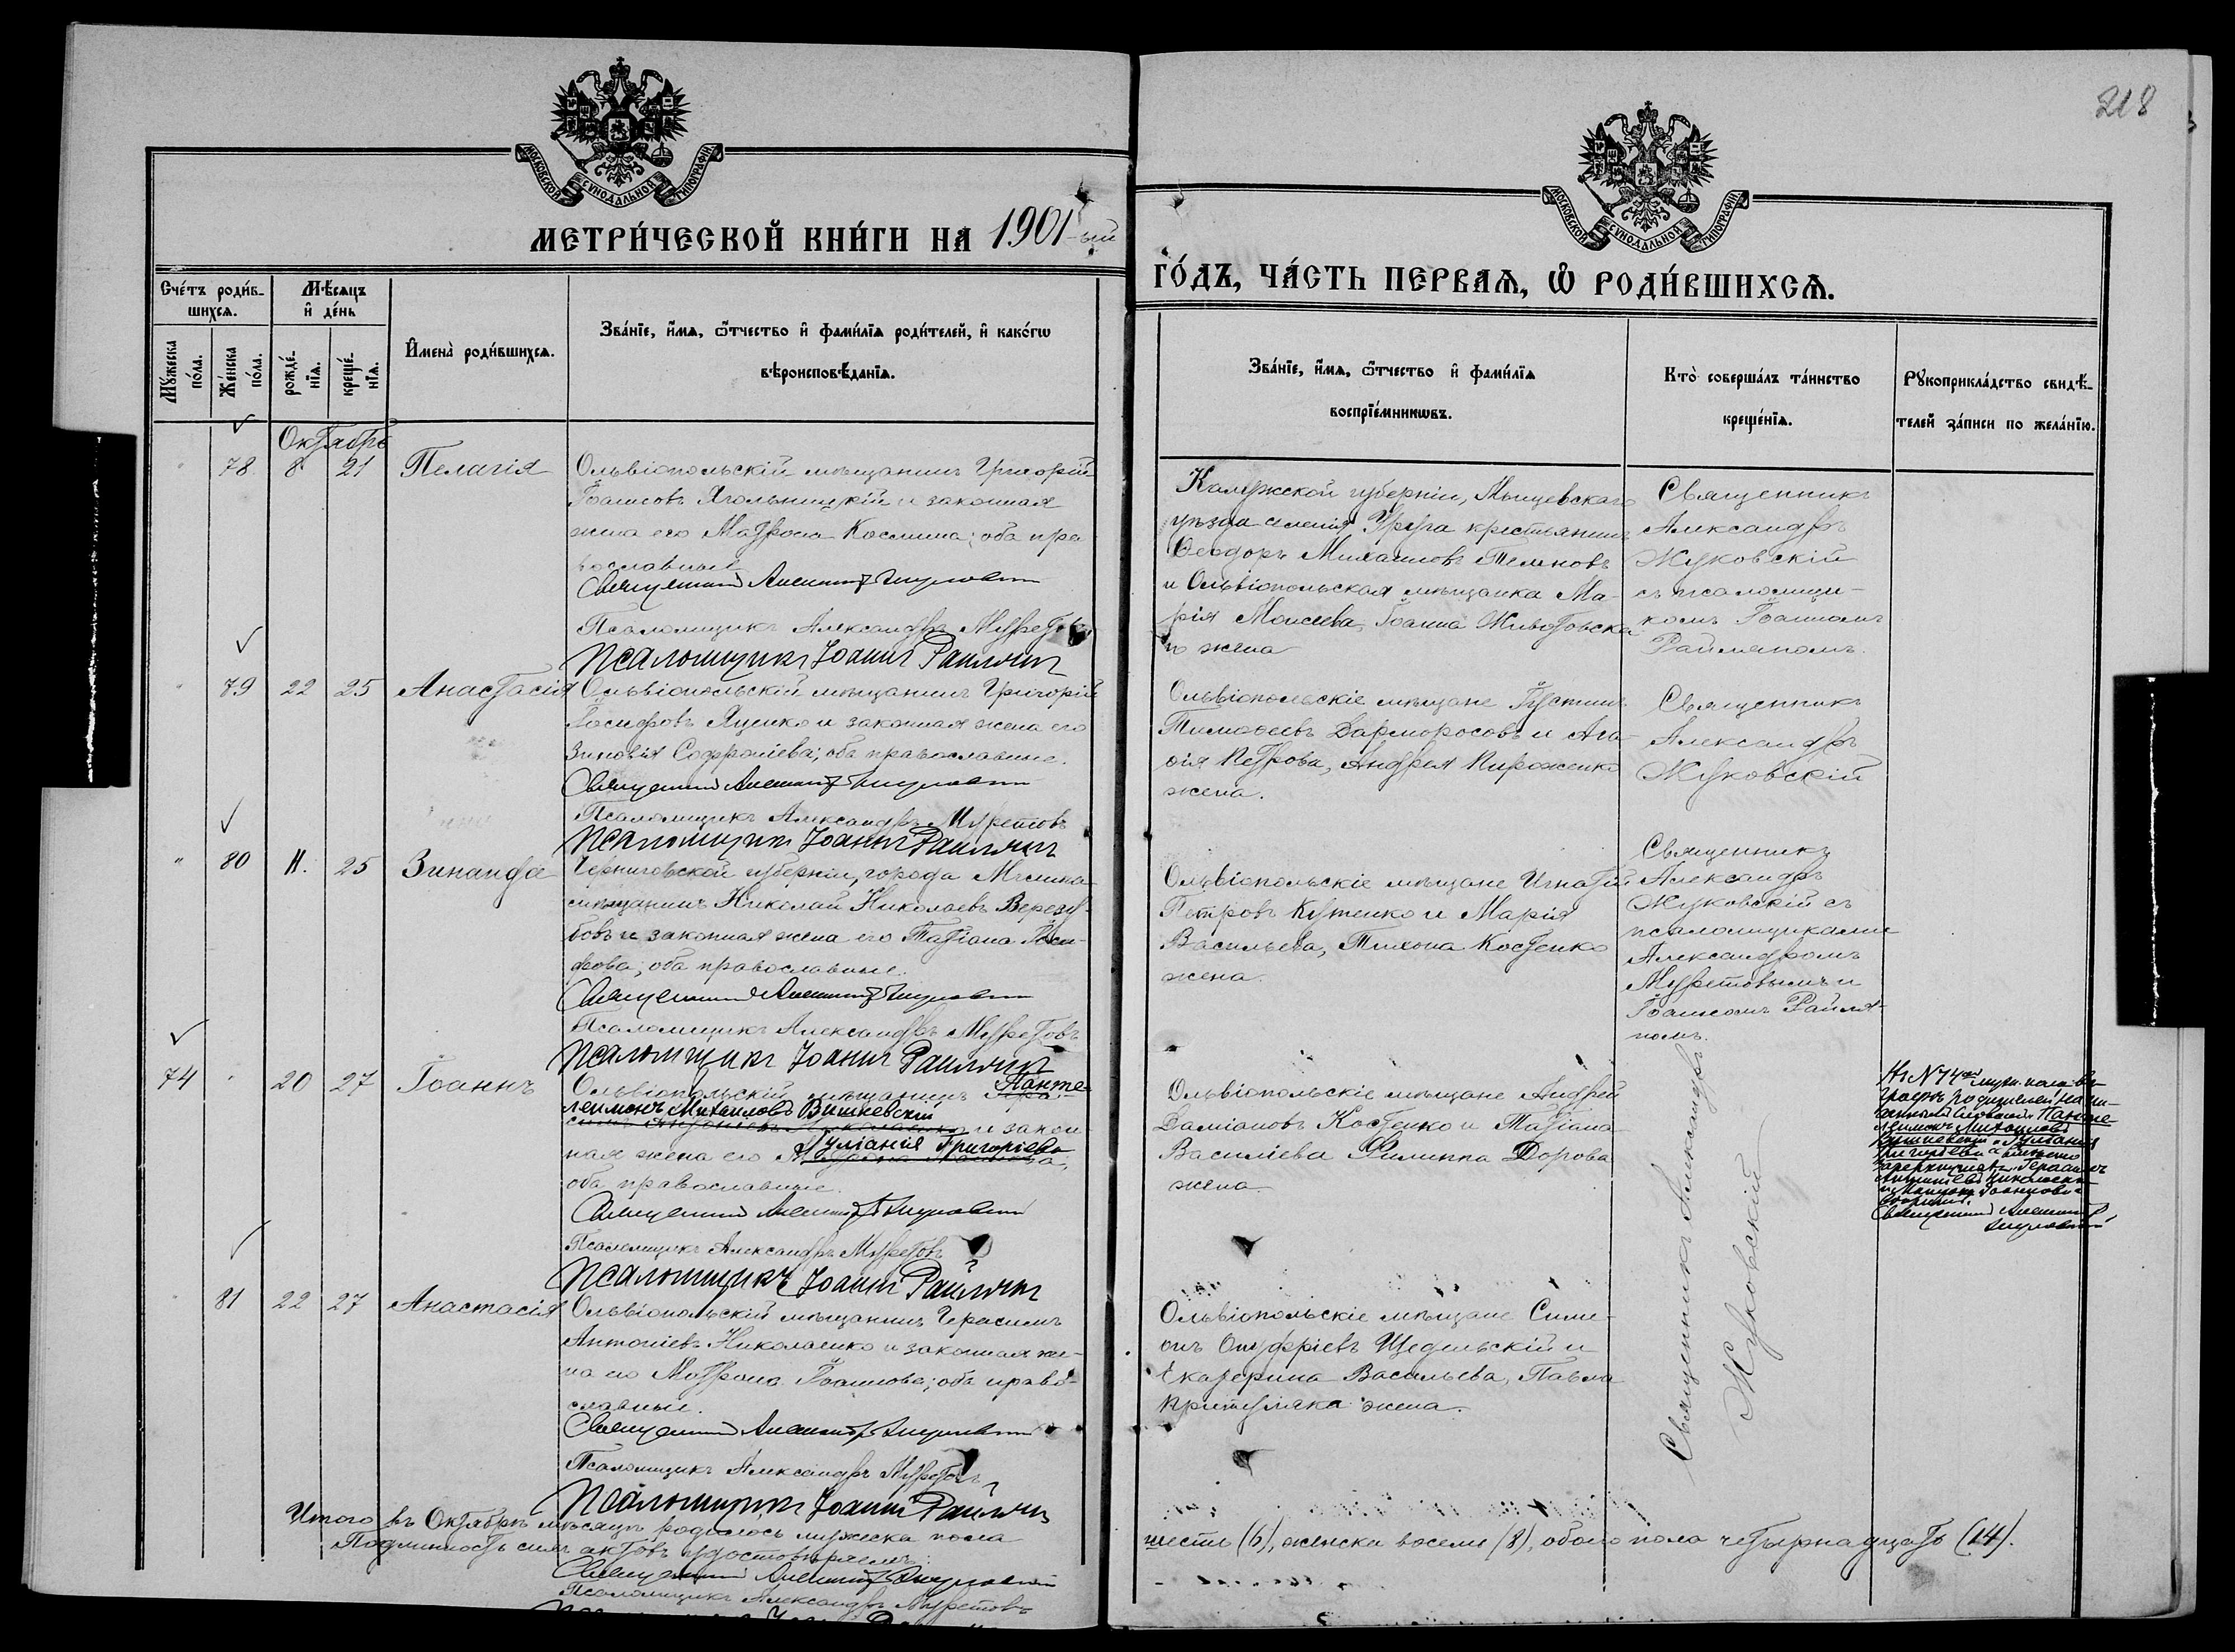 218
МОСКОВСКОЙ СѴНОДАЛЬНОЙ ТИПОГРАФІИ
МОСКОВСКОЙ СѴНОДАЛЬНОЙ ТИПОГРАФІИ
МЕТРИ́ЧЕСКОЙ КНИ́ГИ НА 1901-ый
ГО́ДЪ, ЧА́СТЬ ПЕРВАѦ, Ѽ РОДИ́ВШИХСѦ.
Сче́тъ роди́в-
шихсѧ.
Мꙋ́жеска
по́ла.
Же́нска
по́ла.
Мѣ́сѧцъ
и҆ де́нь
рожде́-
нїѧ.
креще́-
нїѧ.
И҆мена̀ роди́вшихсѧ.
Зва́нїе, и҆́мѧ, ѻ҆́тчество и҆ фами́лїѧ роди́телей, и҆ како́гѡ
вѣроисповѣ́данїѧ.
Зва́нїе, и҆́мѧ, ѻ҆́тчество и҆ фами́лїѧ
воспрїе́мникѡвъ.
Кто̀ соверша́лъ та́инство
креще́нїѧ.
Рꙋкоприкла́дство свидѣ́-
телей за́писи по жела́нїю.
Октябрь
78 8 21 Пелагія
Ольвіопольскій мѣщанинъ Григорій
Іоанновъ Ягольницкій и законная
жена его Матрона Космина; оба пра
вославные
Священникъ Александръ Жуковскій
Псаломщикъ Александръ Муретовъ
Псаломщикъ Іоаннъ Райлянъ
Калужской губерніи, Мещевскаго
уѣзда селенія крестьянинъ
Ѳеодоръ Михаиловъ Телѣновъ
и Ольвіопольская мѣщанка Ма-
рія Моисеева, Іоанна Животовска
го жена
Священникъ
Александръ
Жуковскій
съ псаломщи-
комъ Іоанномъ
Райляномъ.
79 22 25 Анастасія
Ольвіопольскій мѣщанинъ Григорій
Іосифовъ Яценко и законная жена его
Зиновія Софроніева; оба православные.
Священникъ Александръ Жуковскій
Псаломщикъ Александръ Муретовъ
Псаломщикъ Іоаннъ Райлянъ
Ольвіопольскіе мѣщане Іустинъ
Тимоѳеевъ Дарморосовъ и Ага-
ѳія Петрова, Андрея Пироженко
жена.
Священникъ
Александръ
Жуковскій
" 80 11. 25 Зинаида
Черниговской губерніи, города Мглина
мѣщанинъ Николай Николаевъ Верезу-
бовъ и законная жена его Татіана Іоси-
фова; оба православные.
Священникъ Александръ Жуковскій
Псаломщикъ Александръ Муретовъ
Псаломщикъ Іоаннъ Райлянъ
Ольвіопольскіе мѣщане Игнатій
Петровъ Кутенко и Марія
Васильева, Тихона Костенко
жена.
Священникъ
Александръ
Жуковскій съ
псаломщиками
Александромъ
Муретовымъ и
Іоанномъ Райля-
номъ.
74 20 27 Іоаннъ
Ольвіопольскій мѣщанинъ Панте-
леимонъ Михаиловъ Вишневскій
и закон
ная жена его Іуліанія Григоріева
оба православные.
Священникъ Александръ Жуковскій
Псаломщикъ Александръ Муретовъ
Псаломщикъ Іоаннъ Райлянъ
Ольвіопольскіе мѣщане Андрей
Даміановъ Костенко и Татіана
Василіева Филиппа Дорова
жена.
Къ № 74му муж. пола въ
графѣ родителей напи-
санныя слова: Панте-
леимонъ Михаиловъ
Вишневскій и Іуліанія
Григоріева вмѣсто
зачеркнутыхъ Герасимъ
Антоніевъ Николаенко
и Матрона Іоаннова
Священникъ Александръ
Жуковскій
81 22 27 Анастасія
Ольвіопольскій мѣщанинъ Герасимъ
Антоніевъ Николаенко и законная же-
на его Матрона Іоаннова; оба право-
славные.
Священникъ Александръ Жуковскій
Псаломщикъ Александръ Муретовъ
Псаломщикъ Іоаннъ Райлянъ
Ольвіопольскіе мѣщане Симе-
онъ Онуфріевъ Щедельскій и
Екатерина Васильева, Павла
Притуляка жена.
Священникъ Александръ
Жуковскій
Итого въ Октябрѣ мѣсяцѣ родилось мужеска пола
шесть (6), женска восемь (8), обоего пола четырнадцать (14).
Подлинность сихъ актовъ удостовѣряемъ:
Священникъ Александръ Жуковскій
Псаломщикъ Александръ Муретовъ